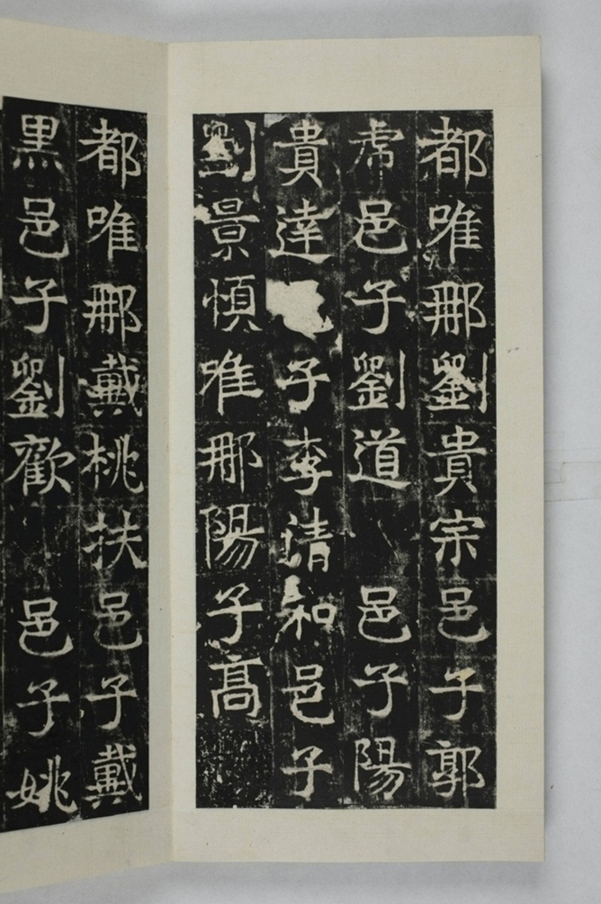 都唯那劉貴宗邑子郭
虎邑子劉道邑子陽
貴達子李清和邑子
劉景慎唯那陽子高
都唯那戴桃扶邑子戴
黑邑子劉歡邑子姚